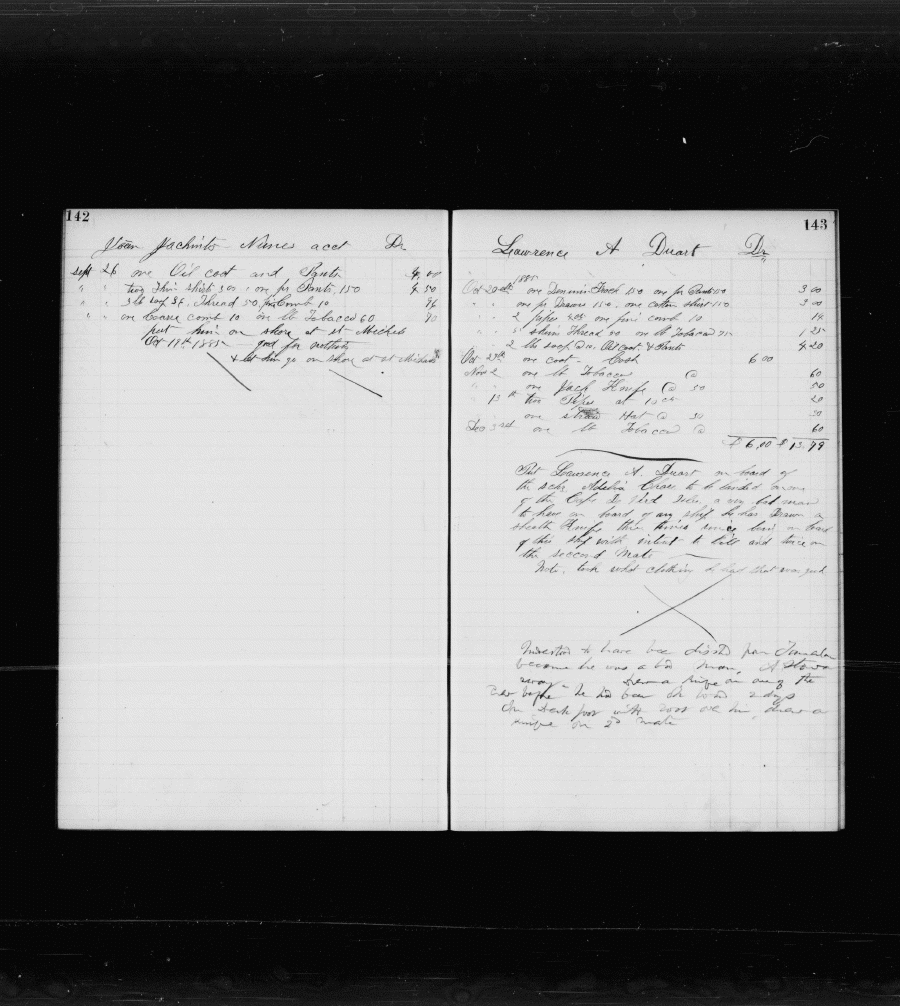 142
Jachinto Nunes acct Dr
Sept 26 one Oil coat and Pants 4 00
" " two Thin shirts 300 one pr Pants 150 4 50
" " 3 lb soap 36, Thread 50, Comb 10 96
" " one Coarse comb 10 one lb Tobacco 60 70
put him on shore at St Michels
Oct 19th 1885 good for nothing
& let him go on shore at St Michaels
143
Lawrence A Duart Dr
1885
Oct 20th one Dennim Frock 150 one pr Pants 150 3 00
" " one pr Drawers 150, one cotton shirt 150 3 00
" " 2 pipes one fine comb 10 14
" " skein Thread one lb Tobacco
2 lbs soap Oil Coat & Pants 4 20
Oct 27th one coat. Cash 6 00
Nov 2 one lb Tobacco @ 60
" " one Jack Knife @ 50 50
13th two Pipes at 10 cts 20
one straw Hat @ 30 30
Dec 3rd one lb Tobacco @ 60
$ 6.00 $ 13.79
Put Lawrence A. Duart on board of
the schr Adelia Chase to be landed
of the Cape De Verd Isles, a very bad man
to have on board of any ship he has Drawn a
sheath Knife three times since been on board
of this ship with intent to kill and twice on
the second Mate
Note, took what clothing he had that was good
to have been from
because he was a bad man, A Stowa
way drew a knife on one of the
crew before he had been on board 2 days
on him, drew a
knife on 2d mate